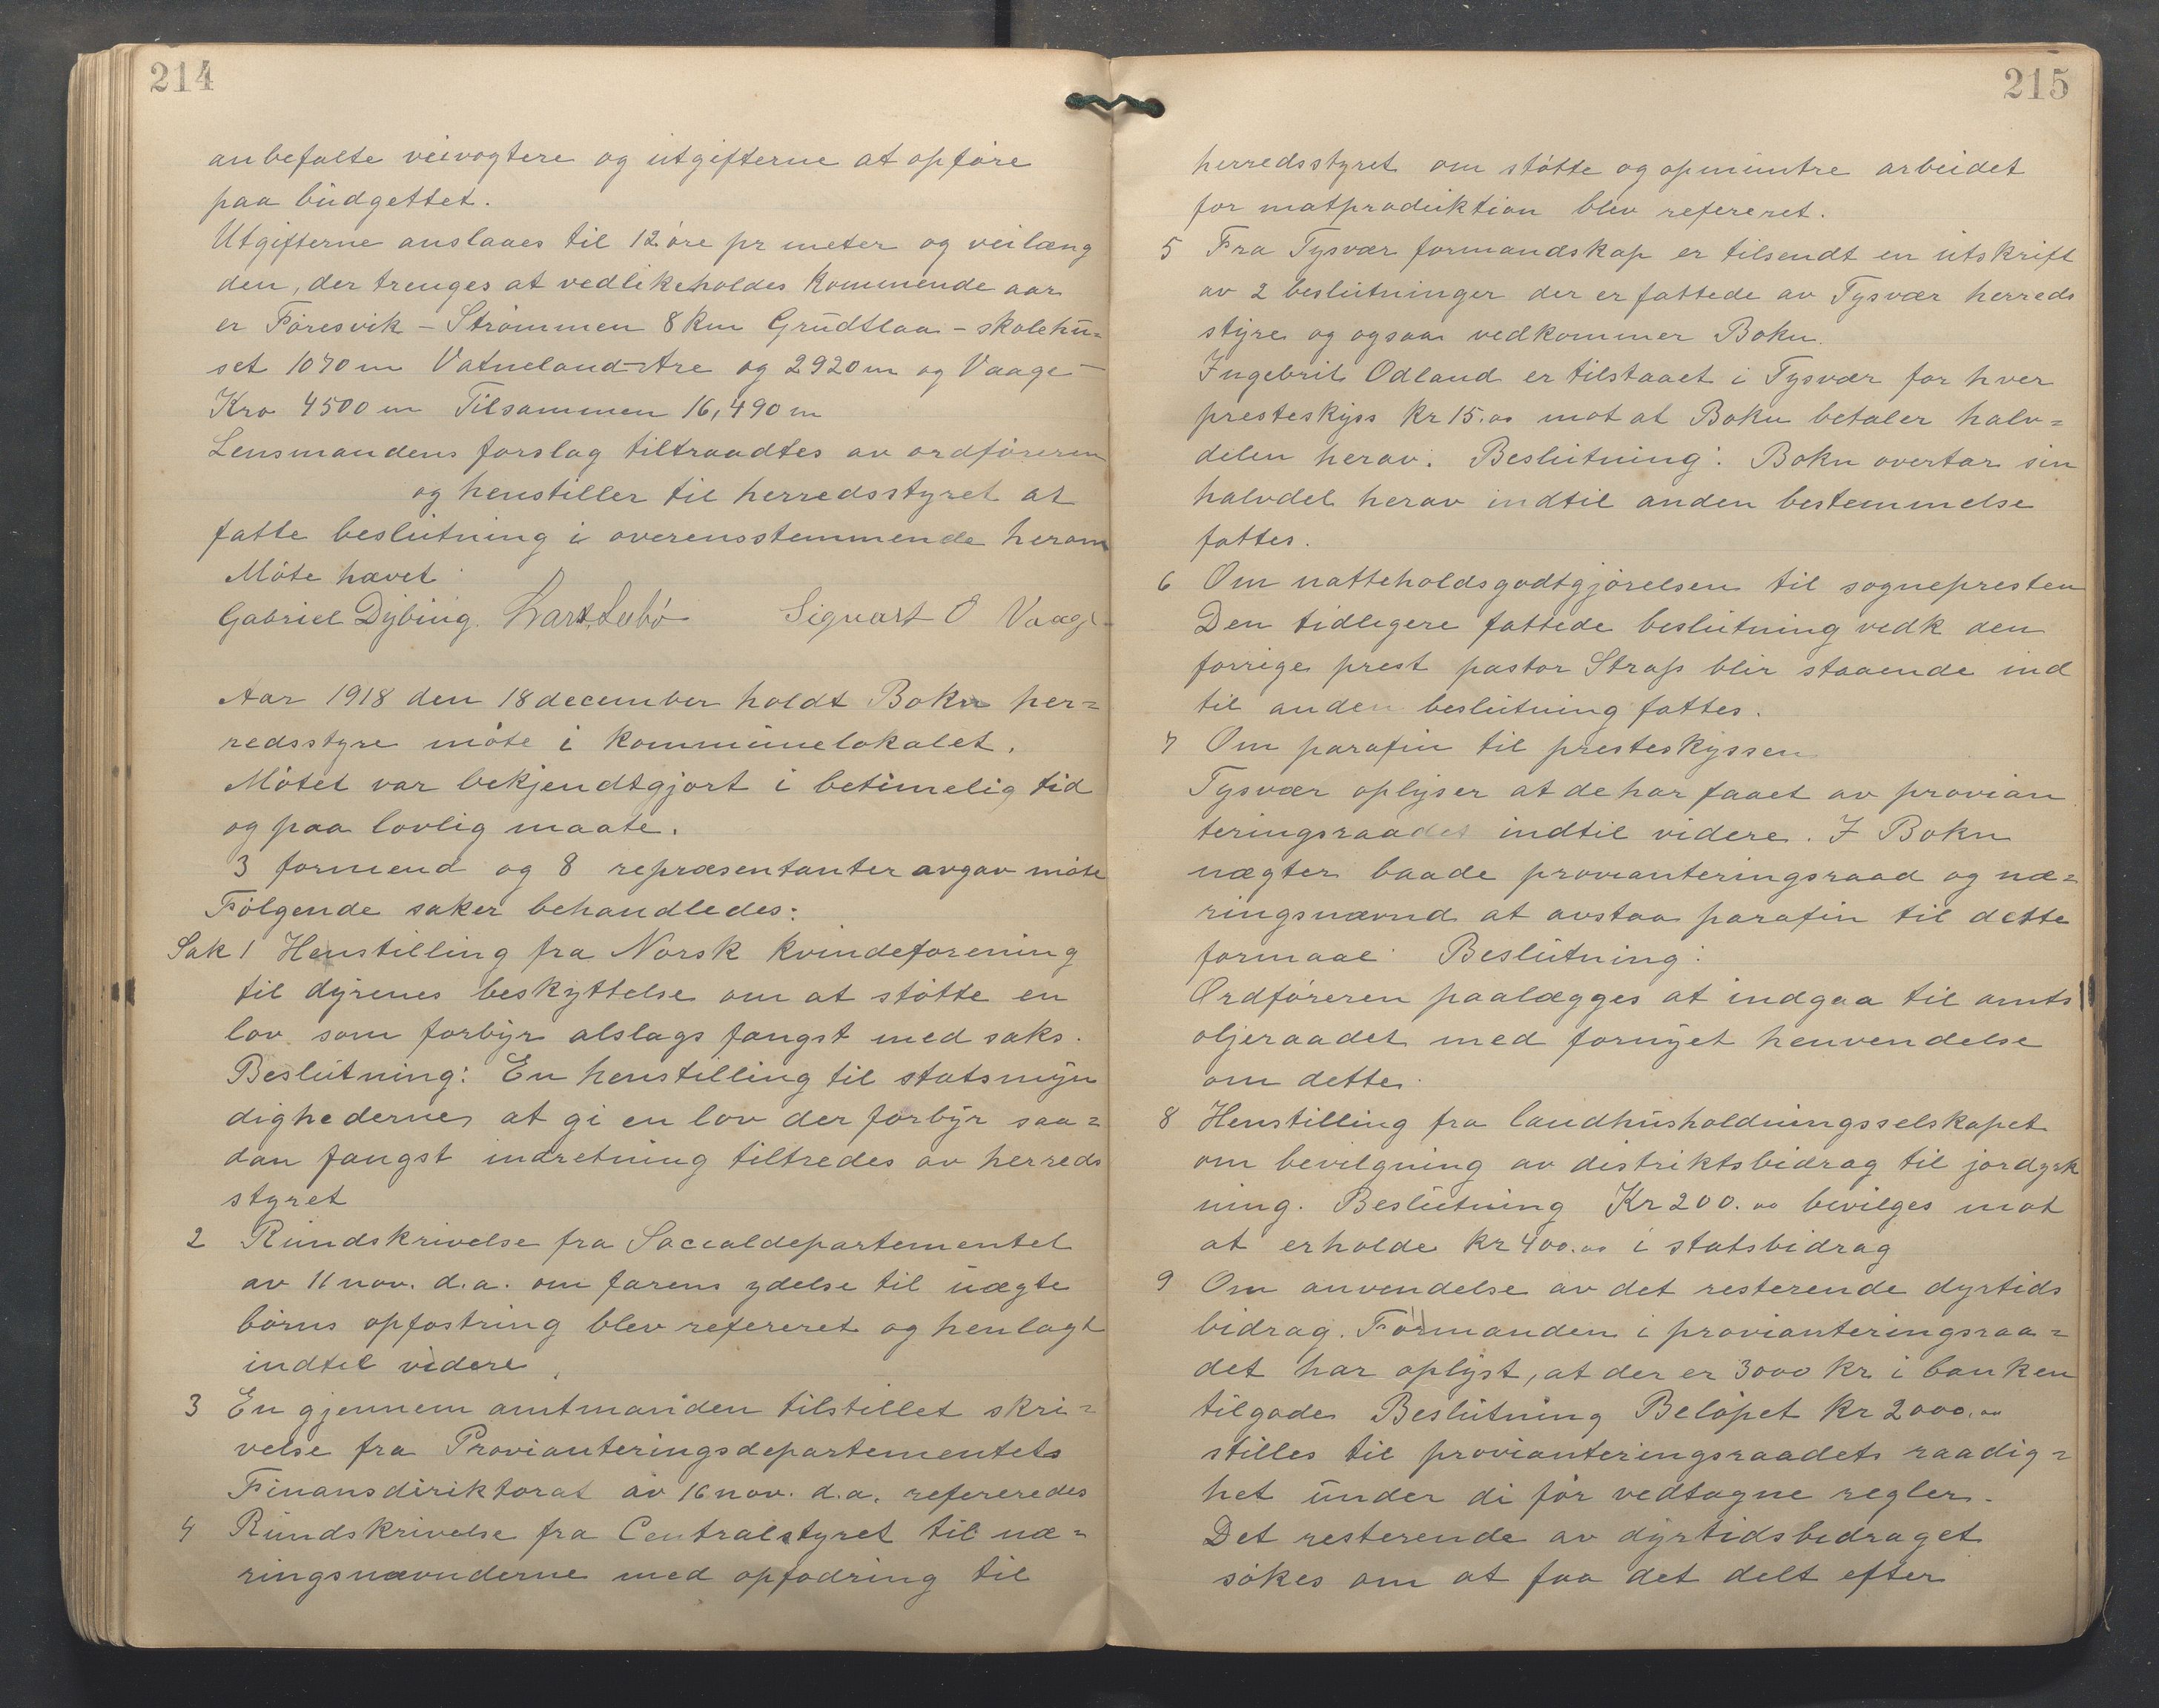 214
anbefalte veivogtere og utgifterne at opføre
paa budgettet.
Utgifterne anslaaes til 12 øre pr meter og veilæng
den, der trenges at vedlikeholdes kommende aar
er Føresvik - Strømmen 8 km Grudtlaa - skolehu=
set 1070 m Vatneland - Are og 2920 m og Vaage -
Kro 4500 m Tilsammen 16,490 m
Lensmandens forslag tiltraadtes av ordføreren
og henstiller til herredsstyret at
fatte beslutning i overensstemmende herom
Møte hævet
Gabriel Dybing. Lars Lubø Sigvart O Vaage
Aar 1918 den 18 december holdt Bokn her=
redsstyre møte i kommunelokalet.
Møtet var bekjendtgjort i betimelig tid
og paa lovlig maate.
3 formend og 8 repræsentanter avgav møte
Følgende saker behandledes:
Sak 1 Henstilling fra Norsk kvindeforening
til dyrenes beskyttelse om at støtte en
lov som forbyr alslags fangst med saks.
Beslutning: En henstilling til statsmyn
dighederne at gi en lov der forbyr saa=
dan fangst indretning tiltredes av herreds
styret
2 Rundskrivelse fra Socialdepartementet
av 11 nov. d.a. om farens ydelse til uægte
børns opfostring blev refereret og henlagt
indtil videre.
3 En gjennem amtmanden tilstillet skri=
velse fra Provianteringsdepartementets
Finansdiriktorat av 16 nov. d.a. refereredes
4 Rundskrivelse fra Centralstyret til næ=
ringsnævnderne med opfodring til
215
herredsstyret om støtte og opmuntre arbeidet
for matproduktion blev refereret.
5 Fra Tysvær formandskap er tilsendt en utskrift
av 2 beslutninger der er fattede av Tysvær herreds
styre og ogsaa vedkommer Bokn.
Ingebrit Odland er tilstaaet i Tysvær for hver
presteskyss kr 15.00 mot at Bokn betaler halv=
delen herav. Beslutning: Bokn overtar sin
halvdel herav indtil anden bestemmelse
fattes.
6 Om natteholdsgodtgjørelsen til sognepresten
Den tidligere fattede beslutning vedk den
forrige prest pastor Strass blir staaende ind
til anden beslutning fattes.
7 Om parafin til presteskyssen
Tysvær oplyser at de har faaet av provian
teringsraadet indtil videre. I Bokn
nægter baade provianteringsraad og næ=
ringsnævnd at avstaa parafin til dette
formaal Beslutning:
Ordføreren paalægges at indgaa til amts
oljeraadet med fornyet henvendelse
om dette.
8 Henstilling fra landhusholdningsselskapet
om bevilgning av distriktsbidrag til jordyrk
ning. Beslutning Kr 200.00 bevilges mot
at erholde kr 400.00 i statsbidrag
9 Om anvendelse av det resterende dyrtids
bidrag. Formanden i provianteringsraa=
det har oplyst, at der er 3000 kr i banken
tilgode Beslutning Beløpet kr 2000.00
stilles til provianteringsraadets raadig=
het under di før vedtagne regler.
Det resterende av dyrtidsbidraget
søkes om at faa det delt efter